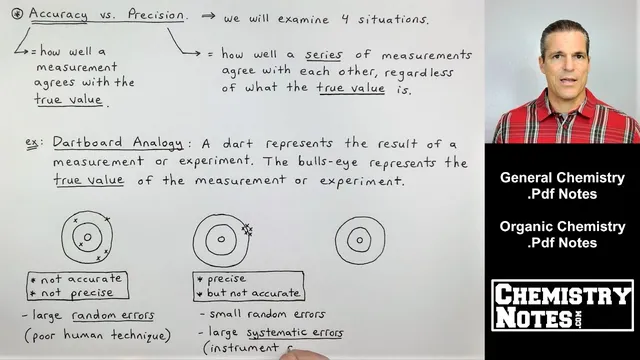 * Accuracy vs. Precision. → we will examine 4 situations.
= how well a
measurement
agrees with the
true value.
= how well a series of measurements
agree with each other, regardless
of what the true value is.
ex: Dartboard Analogy: A dart represents the result of a
measurement or experiment. The bulls-eye represents the
true value of the measurement or experiment.
x x x x x
* not accurate
* not precise
- large random errors
(poor human technique)
x x x x x
* precise
* but not accurate
- small random errors
- large systematic errors
(instrument
General Chemistry
.Pdf Notes
Organic Chemistry
.Pdf Notes
CHEMISTRY
NOTES.COM